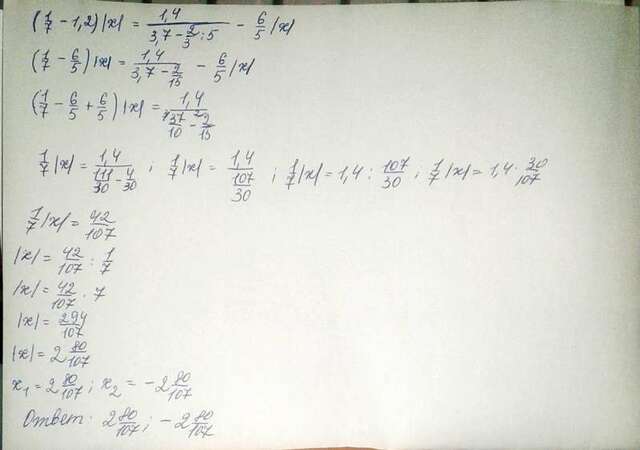 (1/7 - 1,2)|x| = 1,4/(3,7 - 2/3 : 5) - 6/5|x|
(1/7 - 6/5)|x| = 1,4/(3,7 - 2/15) - 6/5|x|
(1/7 - 6/5 + 6/5)|x| = 1,4/(37/10 - 2/15)
1/7|x| = 1,4/(111/30 - 4/30) ; 1/7|x| = 1,4/(107/30) ; 1/7|x| = 1,4 : 107/30 ; 1/7|x| = 1,4 · 30/107
1/7|x| = 42/107
|x| = 42/107 : 1/7
|x| = 42/107 · 7
|x| = 294/107
|x| = 2 80/107
x₁ = 2 80/107 ; x₂ = -2 80/107
Ответ: 2 80/107 ; -2 80/107